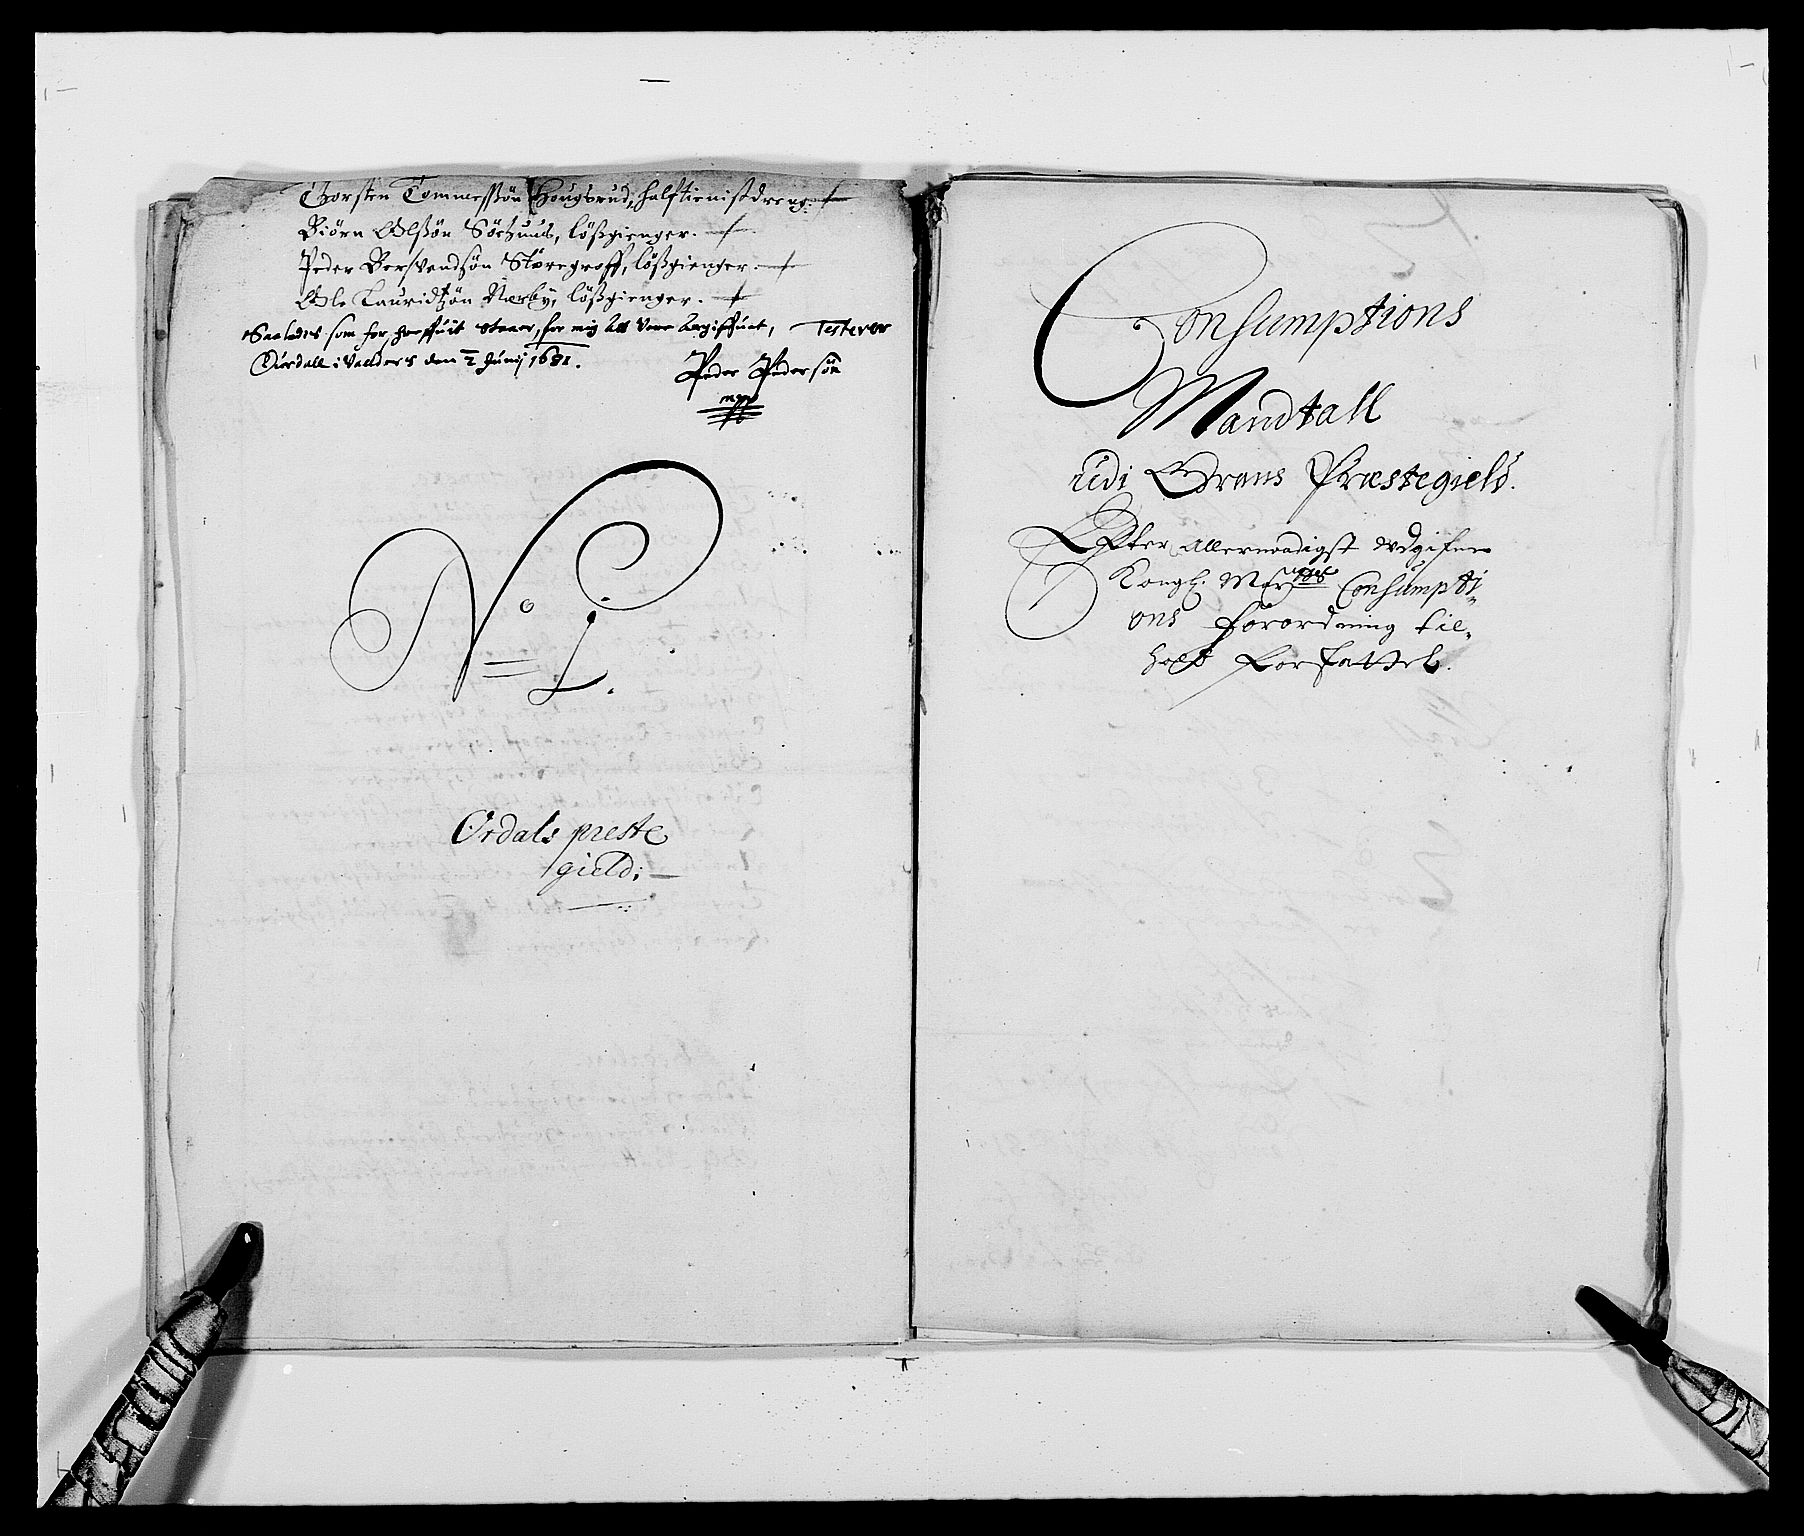 Thorsten Tommessøn Hougsrud, halftienistdreng.
Biørn Olssøn Sørhuus, lößgienger.
Peder Bersvendsøn Støregroff, lößgienger.
Ole Lauridtzøn Nerby, lößgienger.
Saaledes som for, hreffuit staaer, for mig att vere Angiffuet, Testerer
Ourdall i Valders den 2 Junij 1681.
Peder Pedersøn
mpp
No 1.
Ordals preste
gield:
Consumptions
Mandtall
udi Grans Præstegield.
Efter Allernaadigst udgifne
Kongl. May Consumpti-
ons forordning til-
hold forfattet.